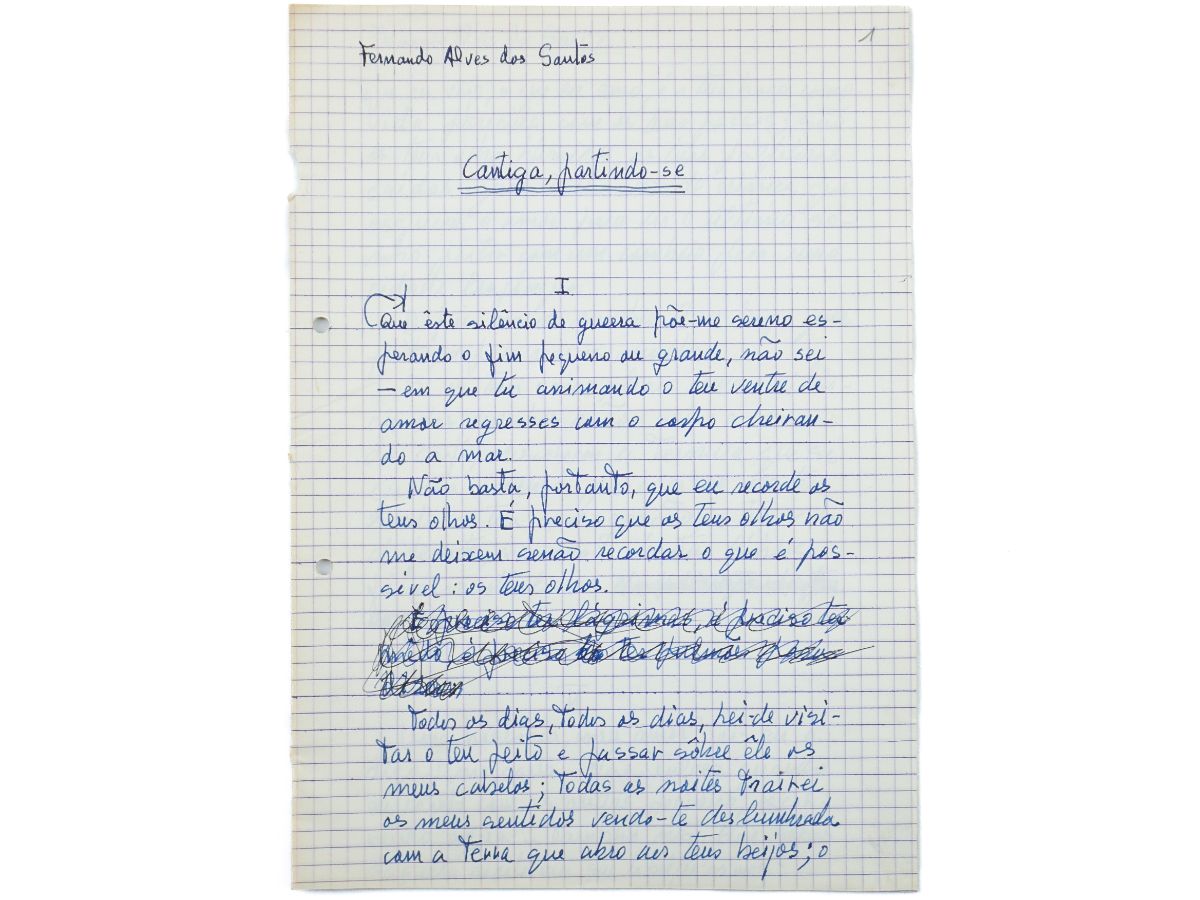 1
Fernando Alves dos Santos
Cantiga, partindo-se
I
Que êste silêncio de guerra põe-me sereno es-
perando o fim pequeno ou grande, não sei
— em que tu animando o teu ventre de
amor regresses com o corpo cheiran-
do a mar.
Não basta, portanto, que eu recorde os
teus olhos. É preciso que os teus olhos não
me deixem senão recordar o que é pos-
sível: os teus olhos.
É preciso ter lágrimas, é preciso ter
é preciso ter
Todos os dias, todos os dias, hei-de visi-
tar o teu peito e passar sôbre êle os
meus cabelos; todas as noites trairei
os meus sentidos vendo-te deslumbrada
com a terra que abro aos teus beijos; o